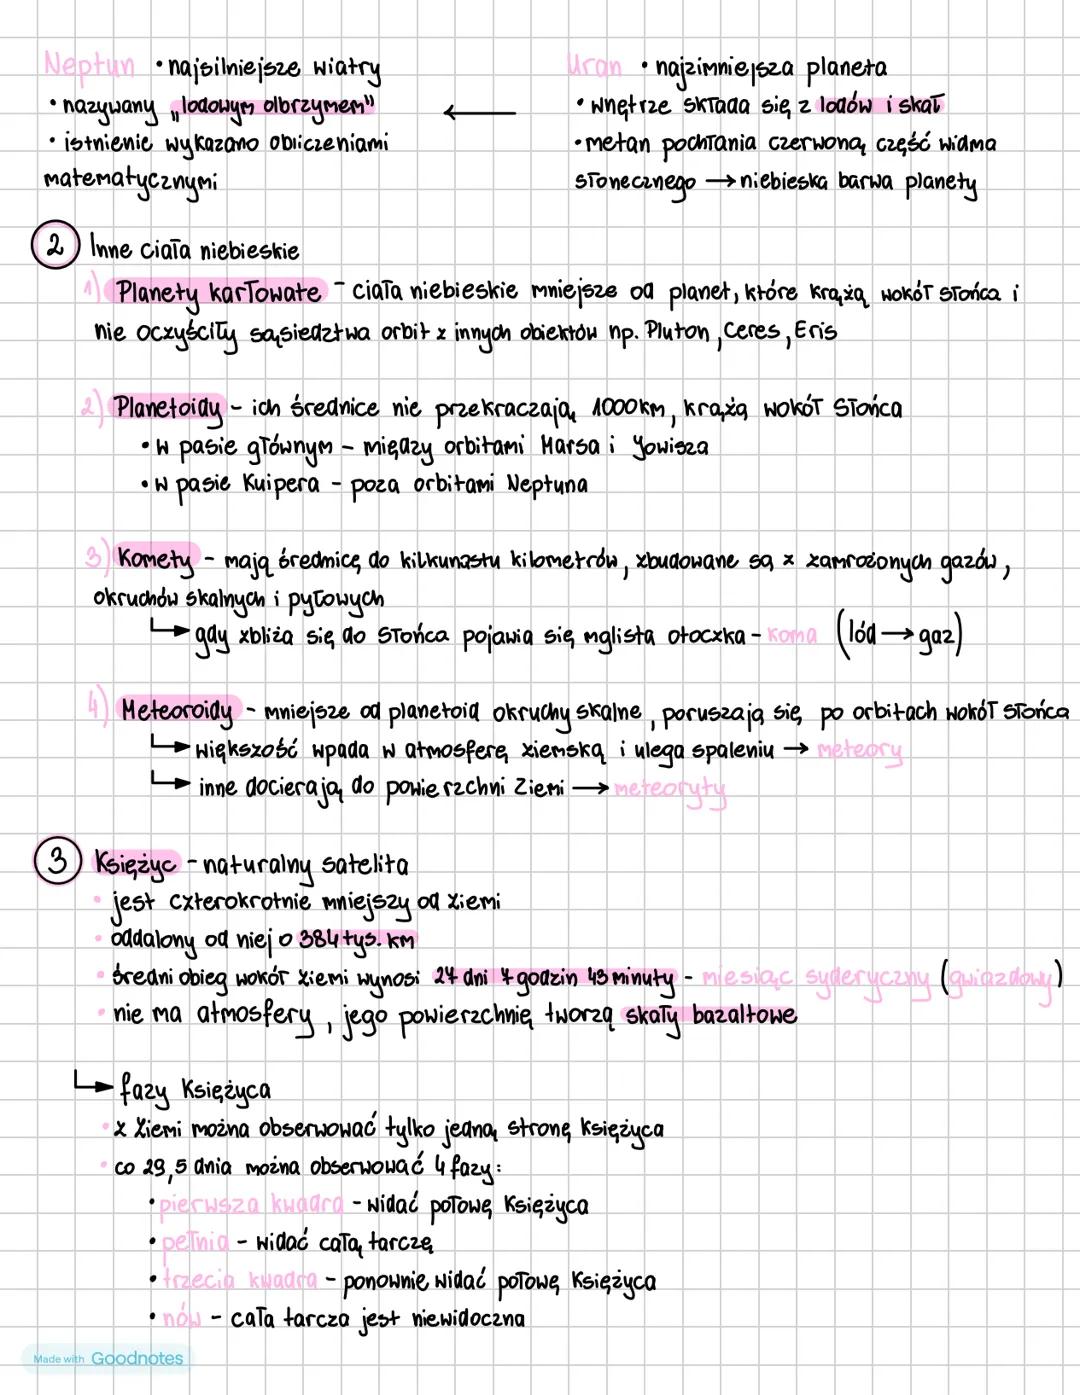 Neptun • najsilniejsze wiatry
• nazywany „lodowym olbrzymem"
• istnienie wykazano obliczeniami
matematycznymi
Uran • najzimniejsza planeta
• wnętrze składa się z lodów i skał
• metan pochłania czerwoną część widma
słonecznego → niebieska barwa planety
2 Inne ciała niebieskie
1) Planety karłowate - ciała niebieskie mniejsze od planet, które krążą wokół słońca i
nie oczyściły sąsiedztwa orbit z innych obiektów np. Pluton, Ceres, Eris
2) Planetoidy - ich średnice nie przekraczają 1000km, krążą wokół Słońca
• w pasie głównym - między orbitami Marsa i Jowisza
• w pasie Kuipera - poza orbitami Neptuna
3) Komety - mają średnicę do kilkunastu kilometrów, zbudowane są z zamrożonych gazów,
okruchów skalnych i pyłowych
↳ gdy zbliża się do Słońca pojawia się mglista otoczka - koma (lód → gaz)
4) Meteoroidy - mniejsze od planetoid okruchy skalne, poruszają się po orbitach wokół słońca
↳ większość wpada w atmosferę ziemską i ulega spaleniu → meteory
↳ inne docierają do powierzchni Ziemi → meteoryty
3 Księżyc - naturalny satelita
• jest czterokrotnie mniejszy od Ziemi
• oddalony od niej o 384 tys. km
• średni obieg wokół Ziemi wynosi 27 dni 7 godzin 43 minuty - miesiąc syderyczny (gwiazdowy)
• nie ma atmosfery, jego powierzchnię tworzą skały bazaltowe
↳ fazy Księżyca
• z Ziemi można obserwować tylko jedną stronę Księżyca
• co 29,5 dnia można obserwować 4 fazy:
• pierwsza kwadra - widać połowę Księżyca
• pełnia - widać całą tarczę
• trzecia kwadra - ponownie widać połowę Księżyca
• nów - cała tarcza jest niewidoczna
Made with Goodnotes